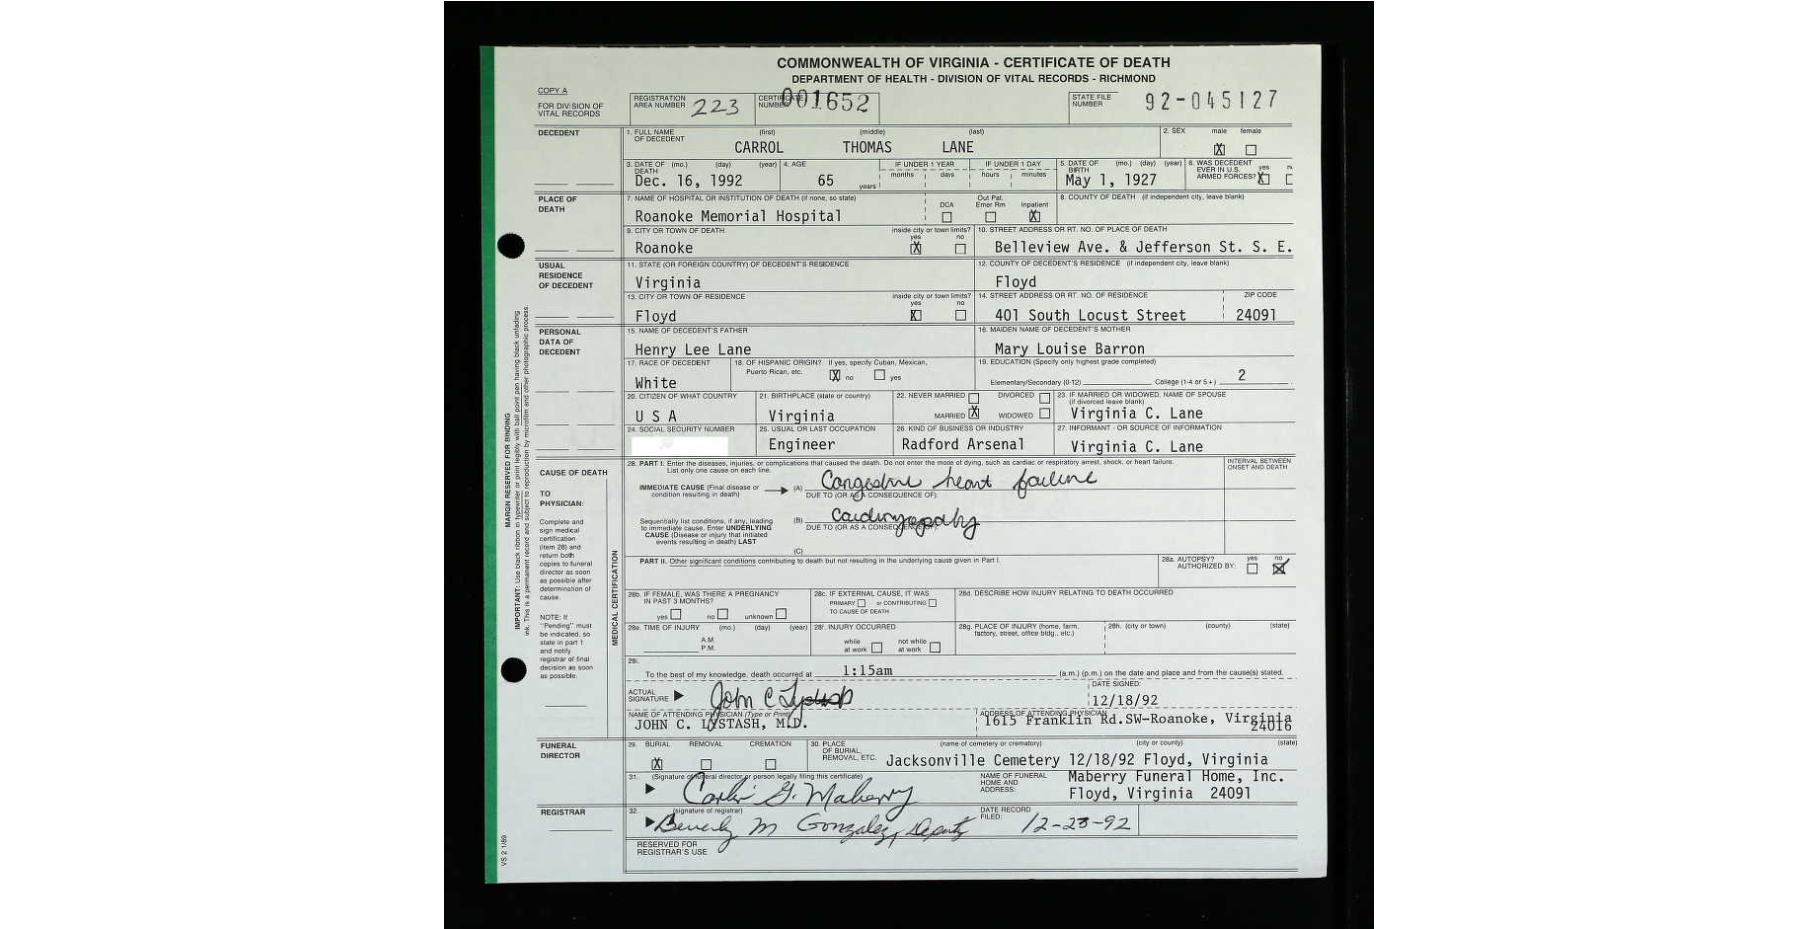 COMMONWEALTH OF VIRGINIA - CERTIFICATE OF DEATH
DEPARTMENT OF HEALTH - DIVISION OF VITAL RECORDS - RICHMOND
COPY A
FOR DIVISION OF VITAL RECORDS
REGISTRATION AREA NUMBER 223
CERTIFICATE NUMBER 001652
STATE FILE NUMBER 92-045127
DECEDENT
1. FULL NAME OF DECEDENT (first) (middle) (last)
CARROL THOMAS LANE
2. SEX male female
X
3. DATE OF DEATH (mo.) (day) (year)
Dec. 16, 1992
4. AGE
65 years
IF UNDER 1 YEAR months days
IF UNDER 1 DAY hours minutes
5. DATE OF BIRTH (mo.) (day) (year)
May 1, 1927
6. WAS DECEDENT EVER IN U.S. ARMED FORCES? yes
X
PLACE OF DEATH
7. NAME OF HOSPITAL OR INSTITUTION OF DEATH (if none, so state)
Roanoke Memorial Hospital
DCA
Out Pat. Emer Rm
Inpatient
X
8. COUNTY OF DEATH (if independent city, leave blank)
9. CITY OR TOWN OF DEATH
Roanoke
inside city or town limits? yes no
X
10. STREET ADDRESS OR RT. NO. OF PLACE OF DEATH
Belleview Ave. & Jefferson St. S. E.
USUAL RESIDENCE OF DECEDENT
11. STATE (OR FOREIGN COUNTRY) OF DECEDENT'S RESIDENCE
Virginia
12. COUNTY OF DECEDENT'S RESIDENCE (if independent city, leave blank)
Floyd
13. CITY OR TOWN OF RESIDENCE
Floyd
inside city or town limits? yes no
X
14. STREET ADDRESS OR RT. NO. OF RESIDENCE
401 South Locust Street
ZIP CODE
24091
PERSONAL DATA OF DECEDENT
15. NAME OF DECEDENT'S FATHER
Henry Lee Lane
16. MAIDEN NAME OF DECEDENT'S MOTHER
Mary Louise Barron
17. RACE OF DECEDENT
White
18. OF HISPANIC ORIGIN? If yes, specify Cuban, Mexican, Puerto Rican, etc.
X no yes
19. EDUCATION (Specify only highest grade completed)
Elementary/Secondary (0-12) College (1-4 or 5+) 2
20. CITIZEN OF WHAT COUNTRY
U S A
21. BIRTHPLACE (state or country)
Virginia
22. NEVER MARRIED DIVORCED
MARRIED X WIDOWED
23. IF MARRIED OR WIDOWED, NAME OF SPOUSE (if divorced leave blank)
Virginia C. Lane
24. SOCIAL SECURITY NUMBER
25. USUAL OR LAST OCCUPATION
Engineer
26. KIND OF BUSINESS OR INDUSTRY
Radford Arsenal
27. INFORMANT - OR SOURCE OF INFORMATION
Virginia C. Lane
CAUSE OF DEATH
TO PHYSICIAN:
Complete and sign medical certification (item 28) and return both copies to funeral director as soon as possible after determination of cause.
NOTE: If "Pending" must be indicated, so state in part 1 and notify registrar of final decision as soon as possible.
MEDICAL CERTIFICATION
28. PART I. Enter the diseases, injuries, or complications that caused the death. Do not enter the mode of dying, such as cardiac or respiratory arrest, shock, or heart failure.
List only one cause on each line.
INTERVAL BETWEEN ONSET AND DEATH
IMMEDIATE CAUSE (Final disease or condition resulting in death)
(A) Congestive heart failure
DUE TO (OR AS A CONSEQUENCE OF):
Sequentially list conditions, if any, leading to immediate cause. Enter UNDERLYING CAUSE (Disease or injury that initiated events resulting in death) LAST
(B) Cardiomyopathy
DUE TO (OR AS A CONSEQUENCE OF):
(C)
PART II. Other significant conditions contributing to death but not resulting in the underlying cause given in Part I.
28a. AUTOPSY? AUTHORIZED BY: yes no
X
28b. IF FEMALE, WAS THERE A PREGNANCY IN PAST 3 MONTHS?
yes no unknown
28c. IF EXTERNAL CAUSE, IT WAS
PRIMARY or CONTRIBUTING
TO CAUSE OF DEATH
28d. DESCRIBE HOW INJURY RELATING TO DEATH OCCURRED
28e. TIME OF INJURY (mo.) (day) (year)
A.M.
P.M.
28f. INJURY OCCURRED
while at work not while at work
28g. PLACE OF INJURY (home, farm, factory, street, office bldg., etc.)
28h. (city or town) (county) (state)
28i.
To the best of my knowledge, death occurred at 1:15am (a.m.) (p.m.) on the date and place and from the cause(s) stated.
ACTUAL SIGNATURE John C
DATE SIGNED:
12/18/92
NAME OF ATTENDING PHYSICIAN (Type or Print)
JOHN C. LYSTASH, M.D.
ADDRESS OF ATTENDING PHYSICIAN
1615 Franklin Rd.SW-Roanoke, Virginia
24016
FUNERAL DIRECTOR
29. BURIAL REMOVAL CREMATION
X
30. PLACE OF BURIAL, REMOVAL, ETC. (name of cemetery or crematory) (city or county) (state)
Jacksonville Cemetery 12/18/92 Floyd, Virginia
31. (Signature of funeral director or person legally filing this certificate)
G. Maberry
NAME OF FUNERAL HOME AND ADDRESS:
Maberry Funeral Home, Inc.
Floyd, Virginia 24091
REGISTRAR
32. (signature of registrar)
Beverly M Gonzalez, Deputy
DATE RECORD FILED:
12-23-92
RESERVED FOR REGISTRAR'S USE
MARGIN RESERVED FOR BINDING
IMPORTANT: Use black ribbon in typewriter or print legibly with ball point pen having black unfading
ink. This is a permanent record and subject to reproduction by microfilm and other photographic process.
VS 2 1/89